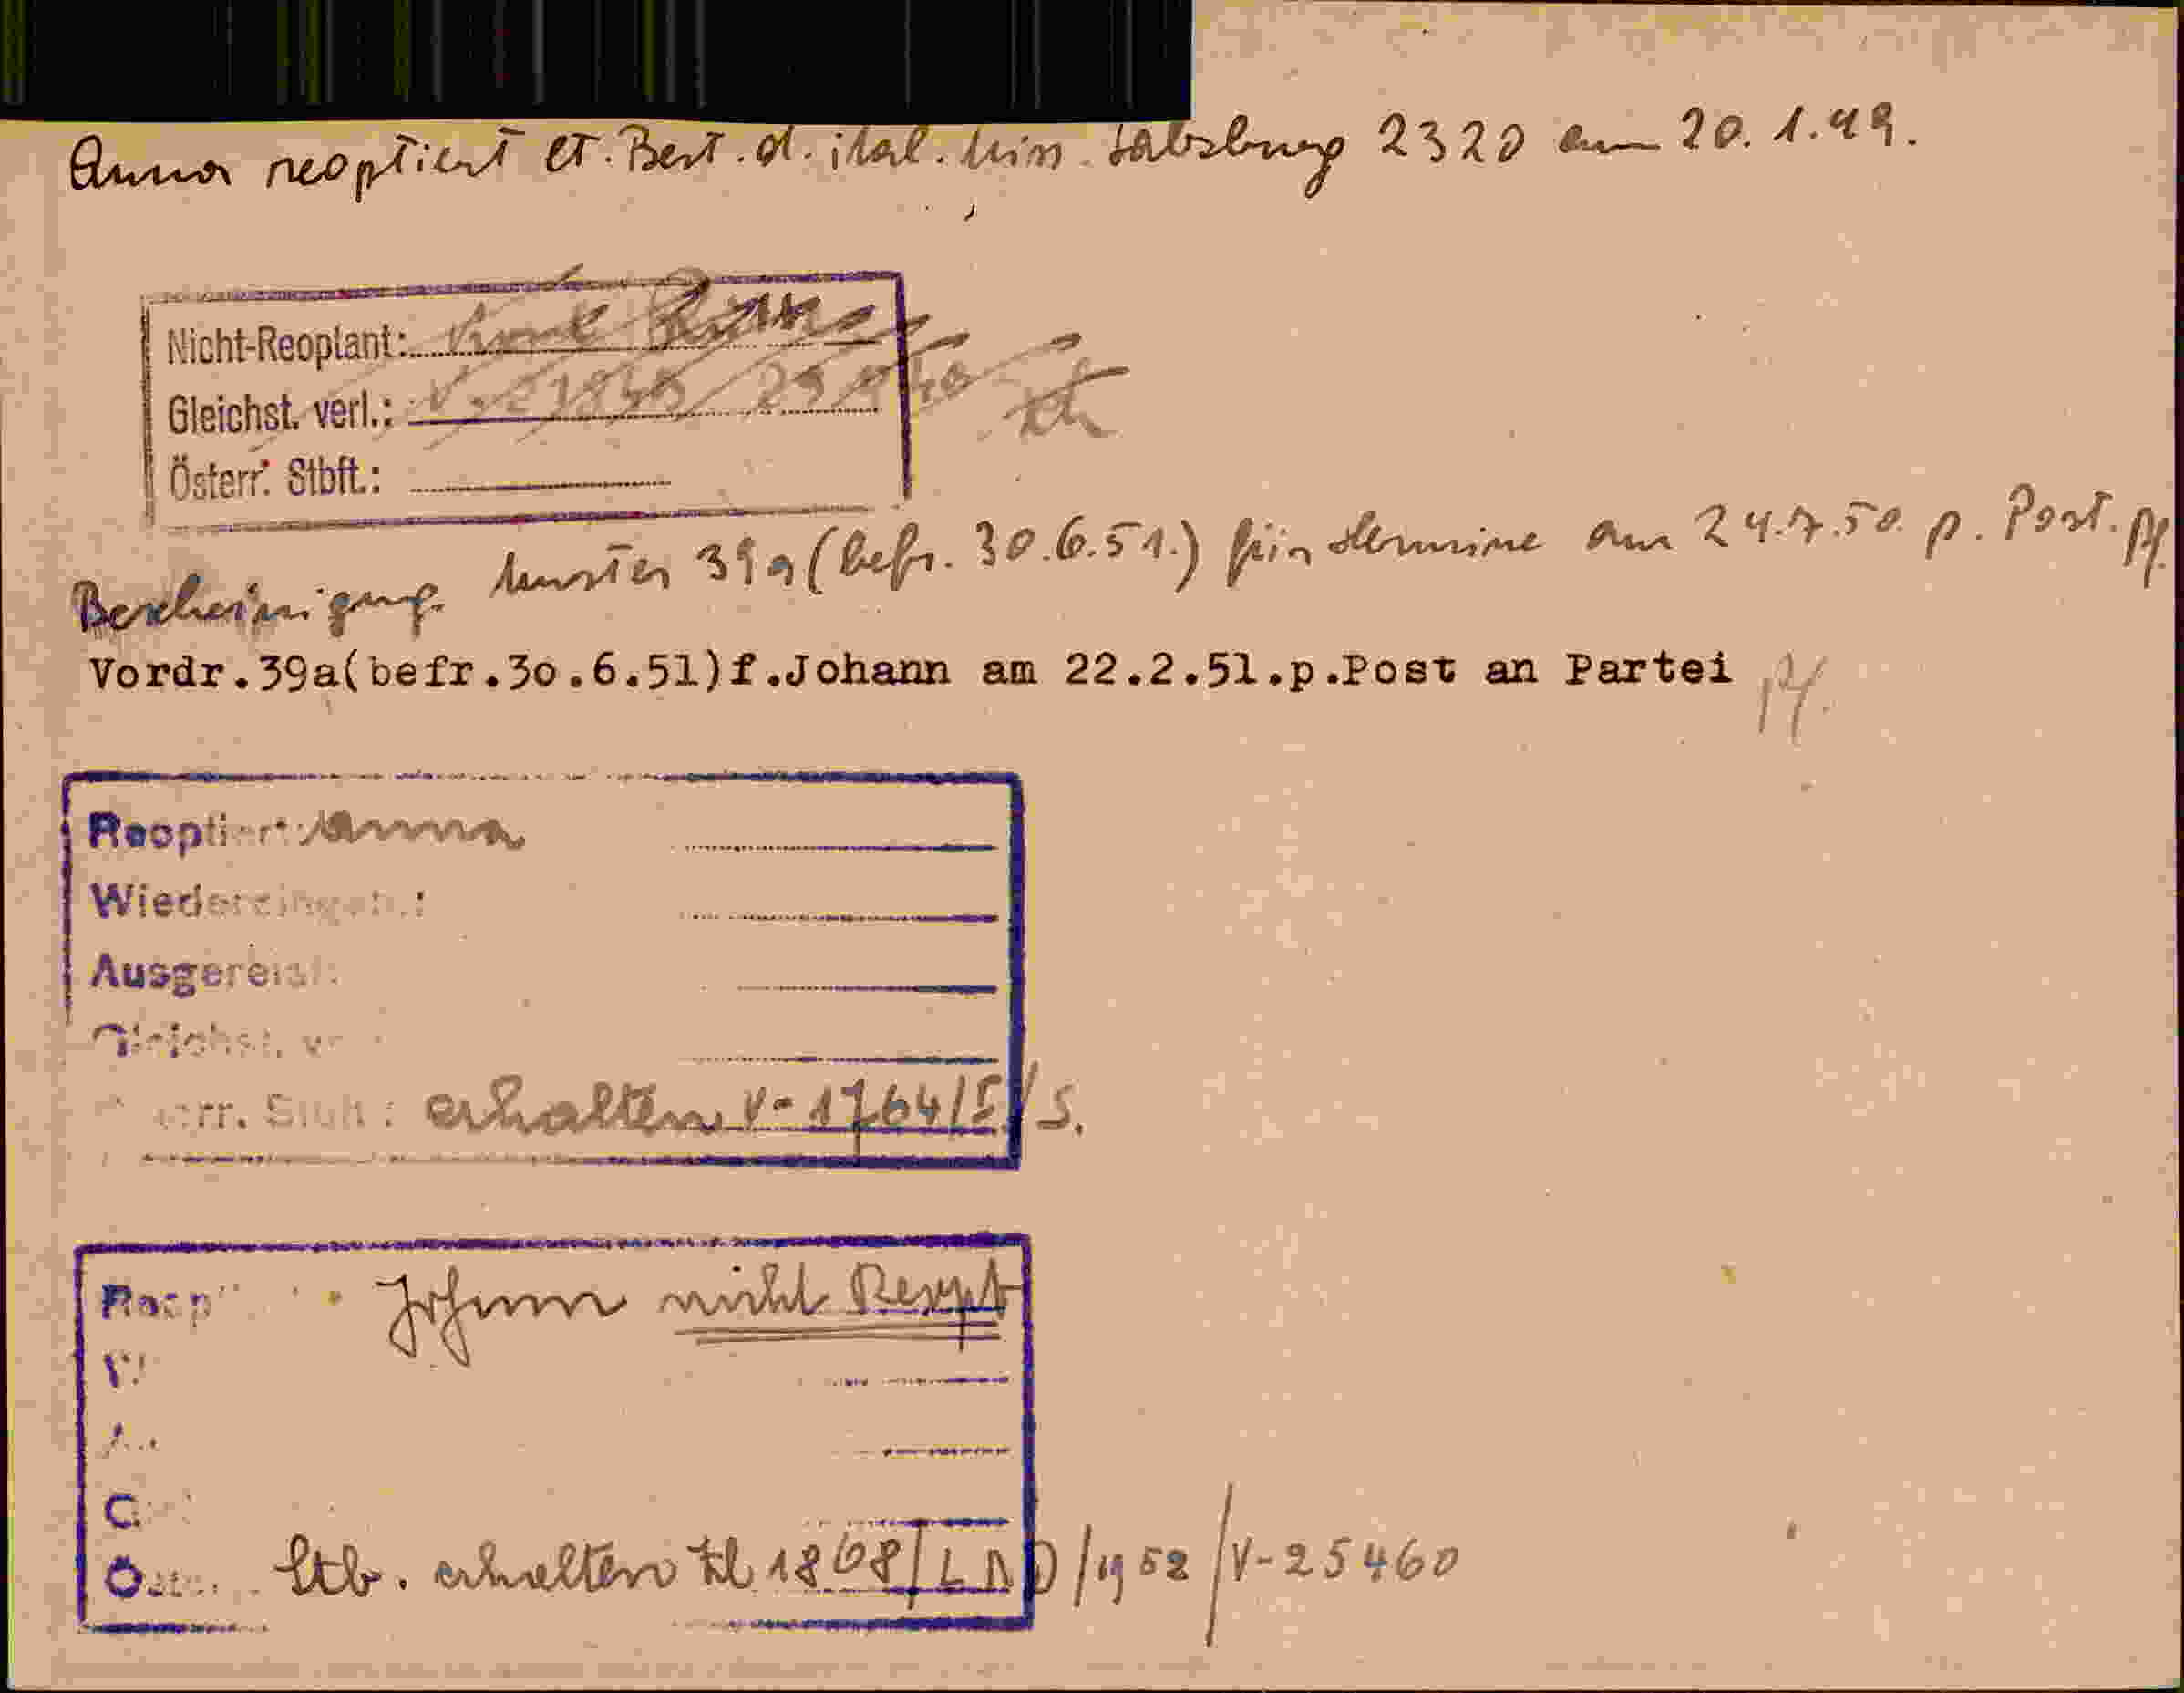 Anna reoptiert lt. Best. d. ital. Min. Salzburg 2320 am 20.1.49.
Nicht-Reoptant:
Gleichst. verl.:
Österr. Stbft.:
Bescheinigung Muster 39a (befr. 30.6.51.) für Hermine am 24.7.50. p. Post. pf.
Vordr.39a(befr.3o.6.51)f.Johann am 22.2.51.p.Post an Partei
Reoptiert: Anna
Wiedereingeb.:
Ausgereist:
Gleichst. ve
rr. Stbft.: erhalten V-1764/I/S.
Reop Johann nicht Reopt
Öster. Stb. erhalten Zl 1868/LAD/1952/V-25460